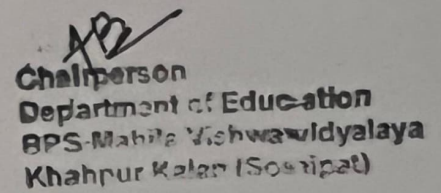 Chairperson
Department of Education
BPS-Mahila Vishwavidyalaya
Khanpur Kalan (Sonipat)